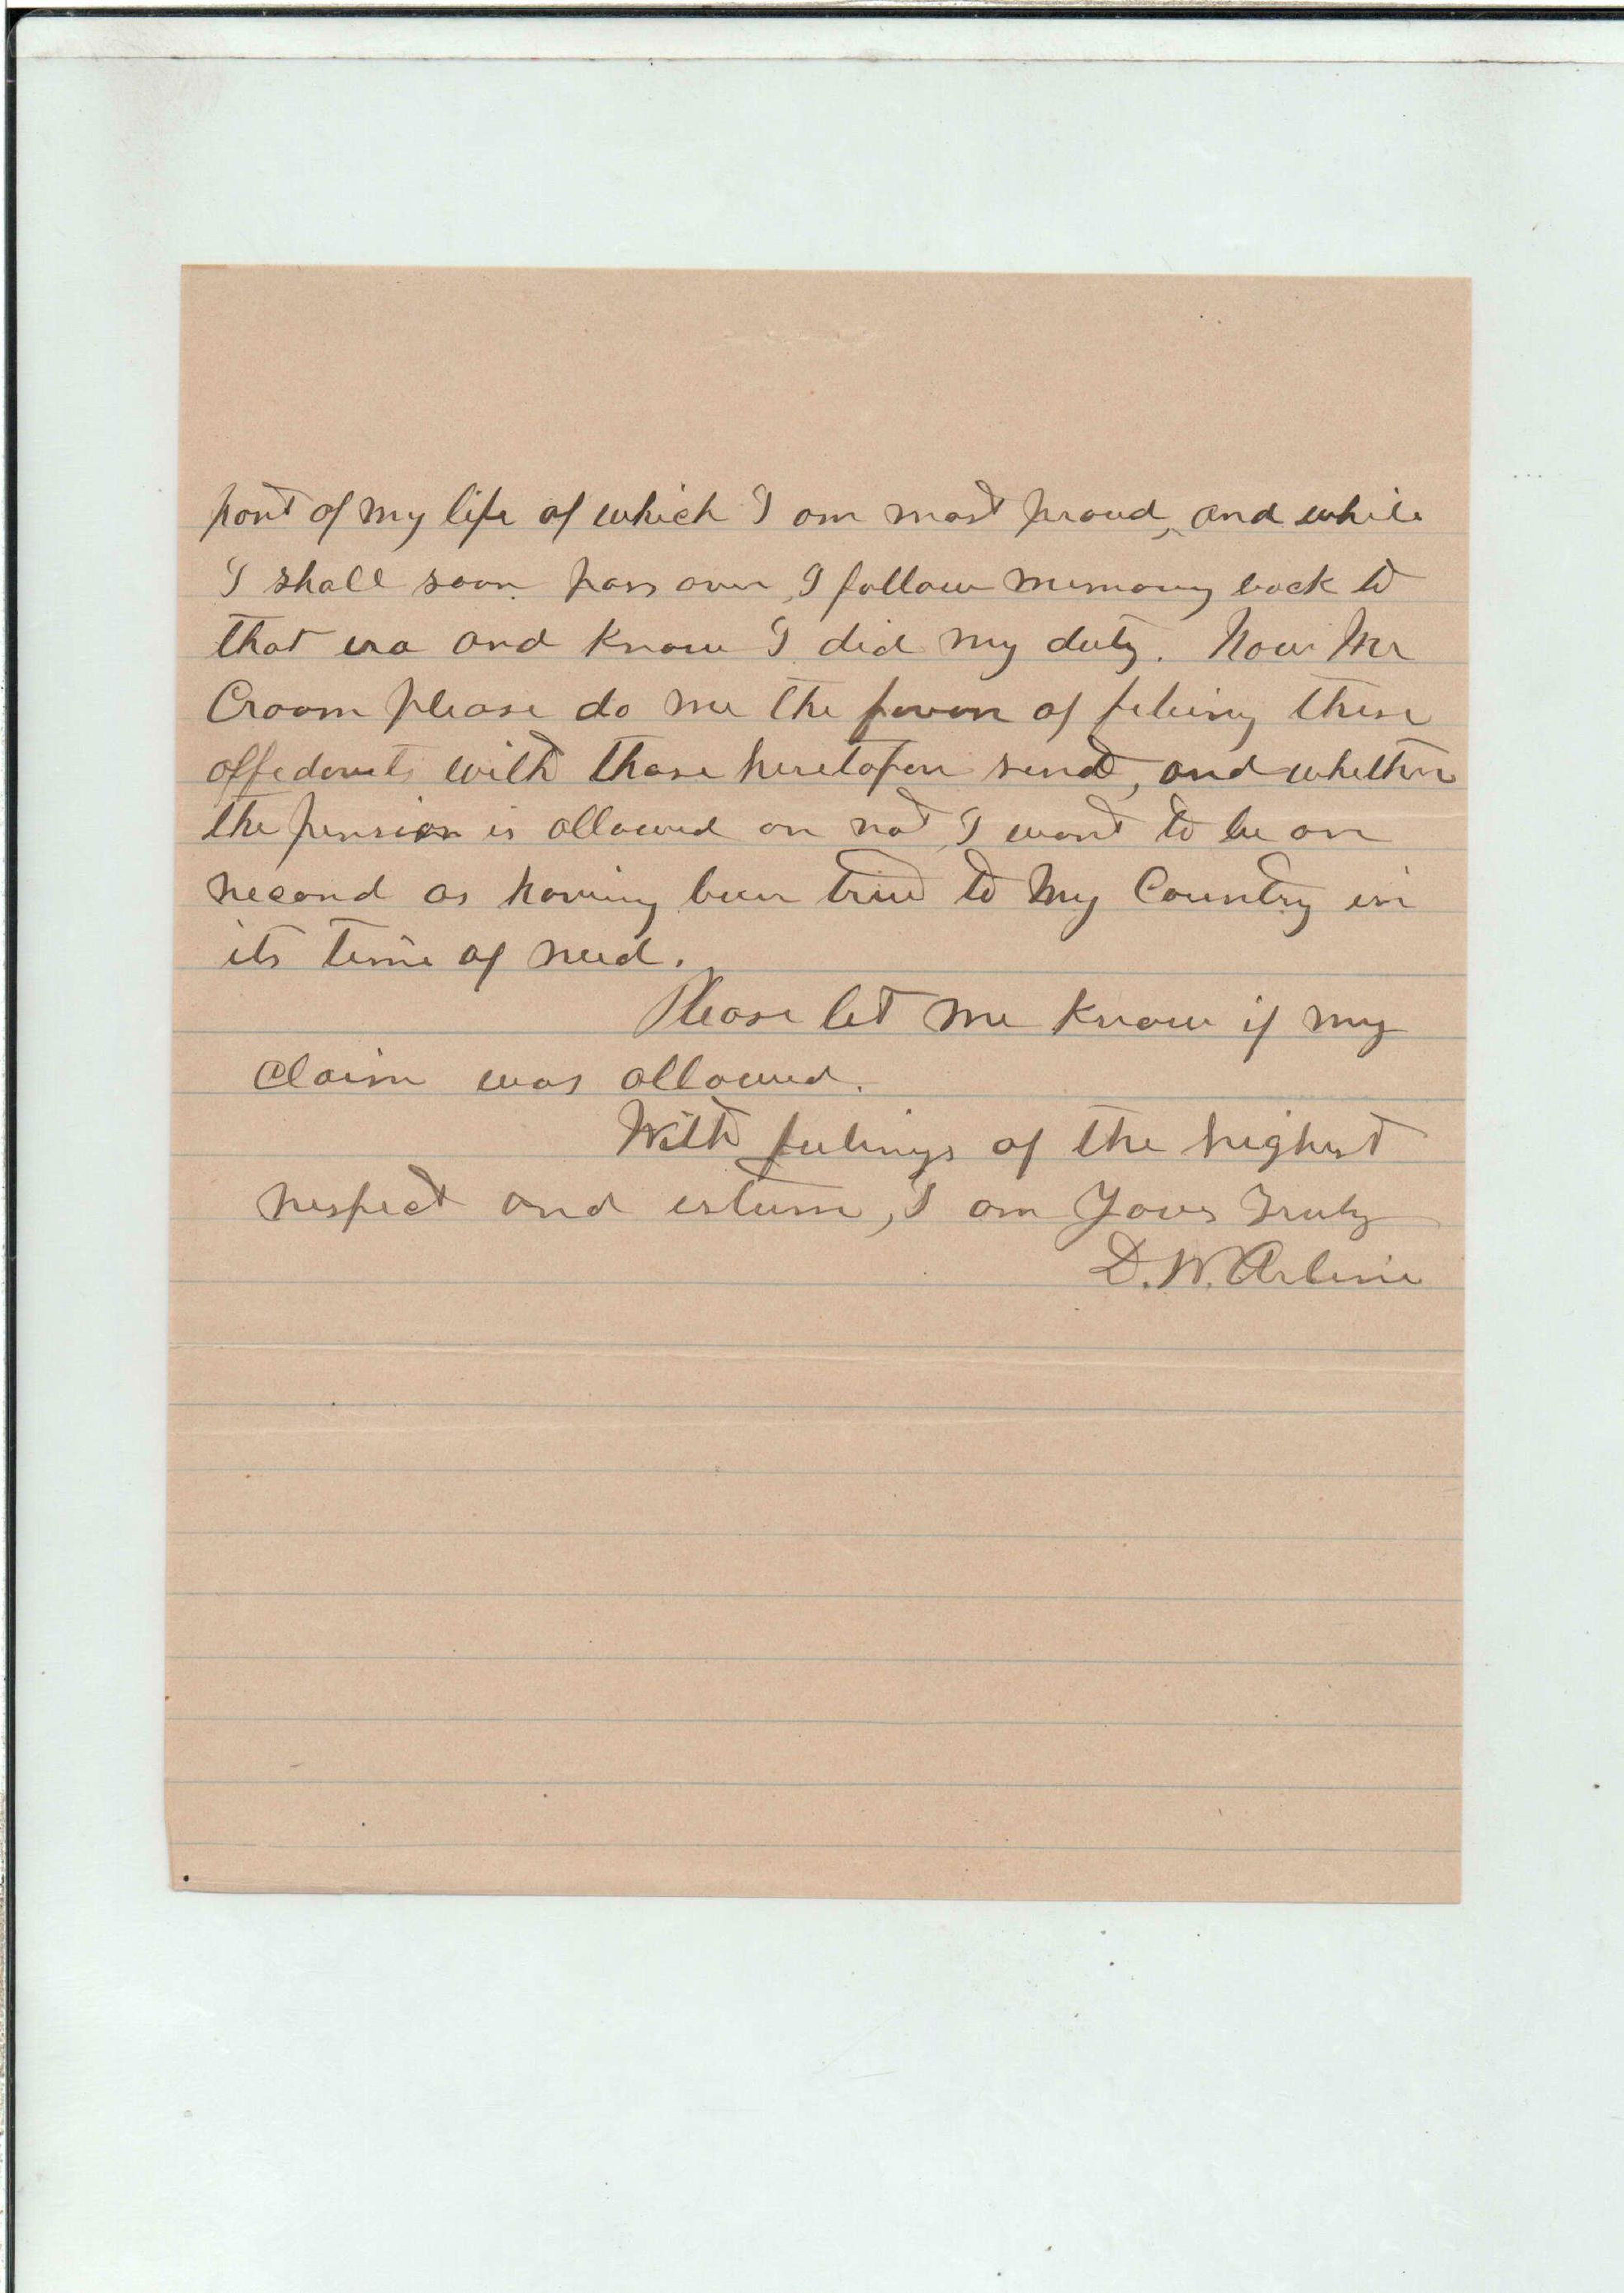 part of my life of which I am most proud, and while
I shall soon pass over, I follow memory back to
that era and know I did my duty. Now Mr
Croom please do me the favor of fileing these
affedavits with those heretofore send, and whether
the pension is allowed or not, I want to be on
record as having been true to my Country in
its time of need.
Please let me know if my
claim was allowed.
With feelings of the highest
respect and esteem, I am Yours Truly
D. W. Arline